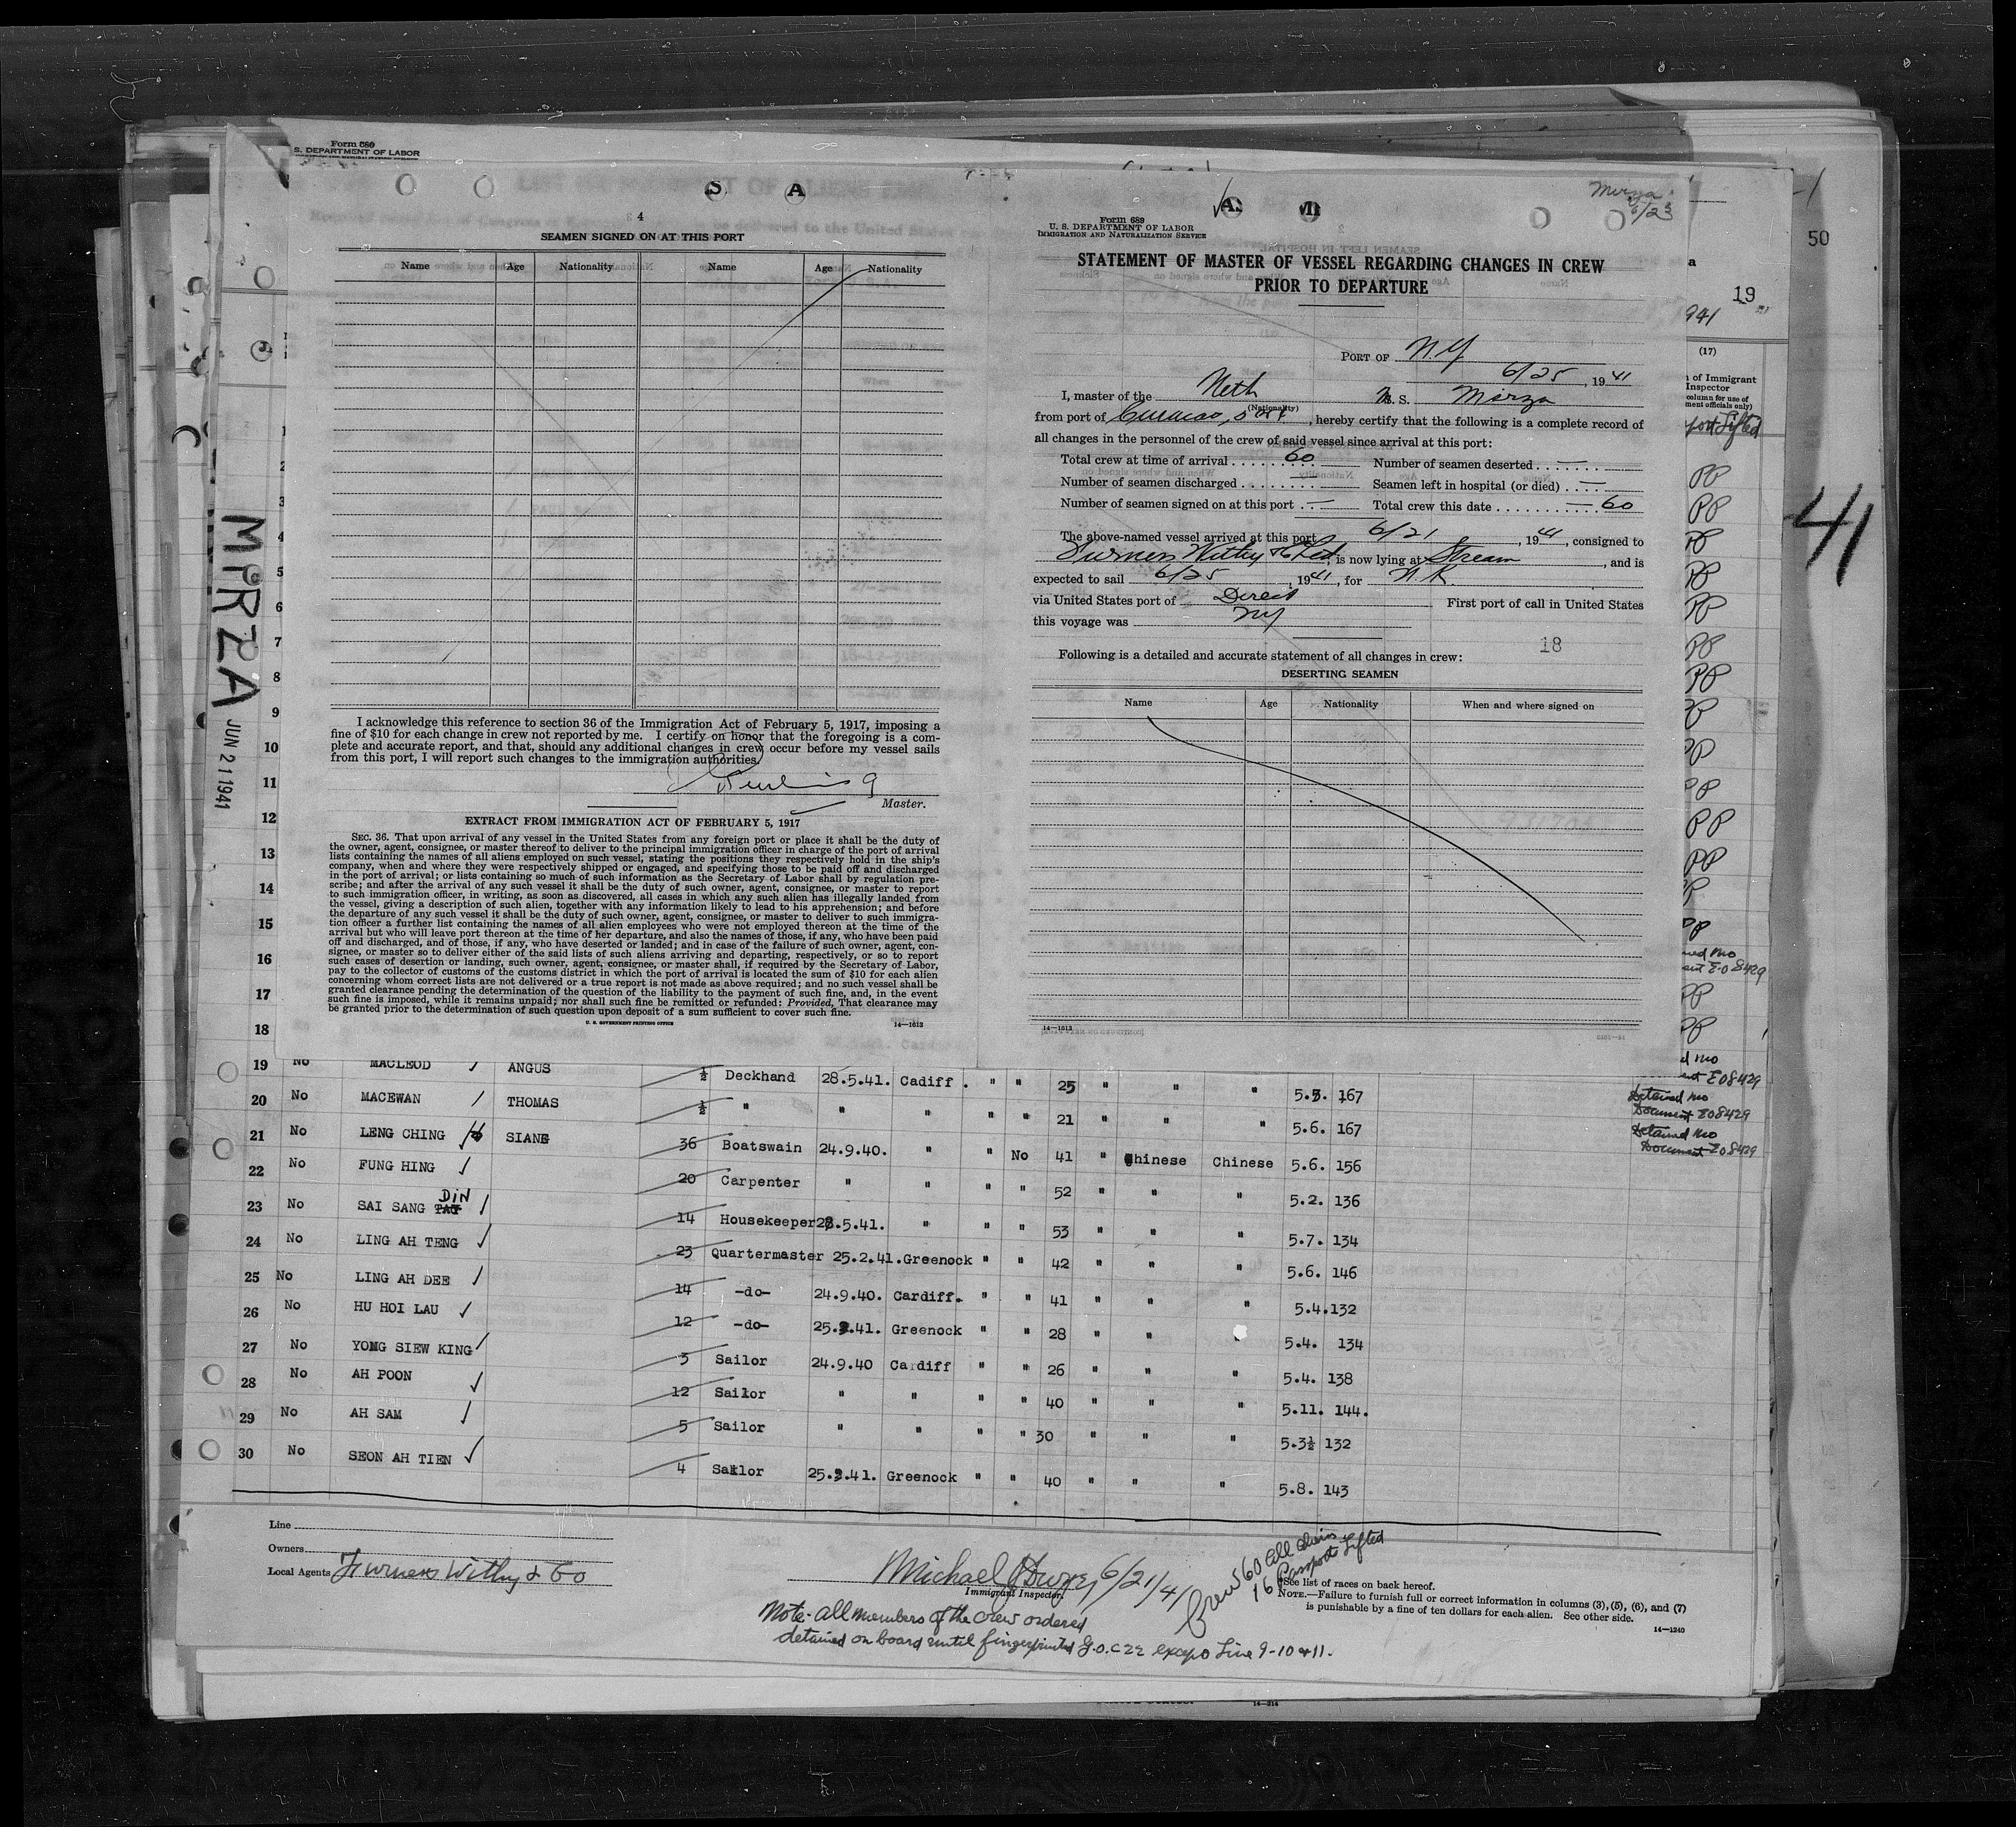 Form 689
S. DEPARTMENT OF LABOR
S. A
4
SEAMEN SIGNED ON AT THIS PORT
Name Age Nationality Name Age Nationality
I acknowledge this reference to section 36 of the Immigration Act of February 5, 1917, imposing a
fine of $10 for each change in crew not reported by me. I certify on honor that the foregoing is a com-
plete and accurate report, and that, should any additional changes in crew occur before my vessel sails
from this port, I will report such changes to the immigration authorities.
Master.
EXTRACT FROM IMMIGRATION ACT OF FEBRUARY 5, 1917
SEC. 36. That upon arrival of any vessel in the United States from any foreign port or place it shall be the duty of
the owner, agent, consignee, or master thereof to deliver to the principal immigration officer in charge of the port of arrival
lists containing the names of all aliens employed on such vessel, stating the positions they respectively hold in the ship's
company, when and where they were respectively shipped or engaged, and specifying those to be paid off and discharged
in the port of arrival; or lists containing so much of such information as the Secretary of Labor shall by regulation pre-
scribe; and after the arrival of any such vessel it shall be the duty of such owner, agent, consignee, or master to report
to such immigration officer, in writing, as soon as discovered, all cases in which any such alien has illegally landed from
the vessel, giving a description of such alien, together with any information likely to lead to his apprehension; and before
the departure of any such vessel it shall be the duty of such owner, agent, consignee, or master to deliver to such immigra-
tion officer a further list containing the names of all alien employees who were not employed thereon at the time of the
arrival but who will leave port thereon at the time of her departure, and also the names of those, if any, who have been paid
off and discharged, and of those, if any, who have deserted or landed; and in case of the failure of such owner, agent, con-
signee, or master so to deliver either of the said lists of such aliens arriving and departing, respectively, or so to report
such cases of desertion or landing, such owner, agent, consignee, or master shall, if required by the Secretary of Labor,
pay to the collector of customs of the customs district in which the port of arrival is located the sum of $10 for each alien
concerning whom correct lists are not delivered or a true report is not made as above required; and no such vessel shall be
granted clearance pending the determination of the question of the liability to the payment of such fine, and, in the event
such fine is imposed, while it remains unpaid; nor shall such fine be remitted or refunded: Provided, That clearance may
be granted prior to the determination of such question upon deposit of a sum sufficient to cover such fine.
U. S. GOVERNMENT PRINTING OFFICE 14—1613
Mirza
6/23
Form 689
U. S. DEPARTMENT OF LABOR
IMMIGRATION AND NATURALIZATION SERVICE
STATEMENT OF MASTER OF VESSEL REGARDING CHANGES IN CREW
PRIOR TO DEPARTURE
PORT OF N.Y
6/25, 1941
I, master of the Neth M. S. Mirza
(Nationality)
from port of Curacao, , hereby certify that the following is a complete record of
all changes in the personnel of the crew of said vessel since arrival at this port:
Total crew at time of arrival 60 Number of seamen deserted —
Number of seamen discharged — Seamen left in hospital (or died) —
Number of seamen signed on at this port — Total crew this date 60
The above-named vessel arrived at this port 6/21, 1941, consigned to
Furness Withy & Co Ltd, is now lying at Stream, and is
expected to sail 6/25, 1941, for N.K.
via United States port of Direct First port of call in United States
this voyage was NY
18
Following is a detailed and accurate statement of all changes in crew:
DESERTING SEAMEN
Name Age Nationality When and where signed on
14—1613
50
19
941
(17)
of Immigrant
Inspector
column for use of
ment officials only)
port Lifted
PP
PP
PP
PP
PP
PP
PP
PP
PP
PP
PP
PP
PP
PP
ned No
ent E.O 8429
PP
PP
41
MIRZA
JUN 21 1941
1
2
3
4
5
6
7
8
9
10
11
12
13
14
15
16
17
18
19 No MACLEOD ANGUS ½ Deckhand 28.5.41. Cadiff. " " 25 " " " 5.5. 167 d No ent E08429
20 No MACEWAN THOMAS ½ " " " " " 21 " " " 5.6. 167 Detained No Document E08429
21 No LENG CHING SIANG 36 Boatswain 24.9.40. " " No 41 " Chinese Chinese 5.6. 156 Detained No Document E08429
22 No FUNG HING 20 Carpenter " " " " 52 " " " 5.2. 136
23 No SAI SANG TAT DIN 14 Housekeeper 28.5.41. " " " 53 " " " 5.7. 134
24 No LING AH TENG 23 Quartermaster 25.2.41. Greenock " " 42 " " " 5.6. 146
25 No LING AH DEE 14 -do- 24.9.40. Cardiff. " " 41 " " " 5.4. 132
26 No HU HOI LAU 12 -do- 25.2.41. Greenock " " 28 " " 5.4. 134
27 No YONG SIEW KING 3 Sailor 24.9.40 Cardiff " " 26 " " " 5.4. 138
28 No AH POON 12 Sailor " " " " 40 " " " 5.11. 144.
29 No AH SAM 5 Sailor " " " " 30 " " " 5.3½ 132
30 No SEON AH TIEN 4 Sailor 25.2.41. Greenock " " 40 " " " 5.8. 143
Line
Owners
Local Agents Furness Withy & Co
Michael O'Dwyer 6/21/41
Immigrant Inspector.
Crew 60 all
16 Passports Lifted
Note- all members of the crew ordered
detained on board until fingerprinted G.O. C22 except Line 9-10 & 11.
See list of races on back hereof.
NOTE.—Failure to furnish full or correct information in columns (3), (5), (6), and (7)
is punishable by a fine of ten dollars for each alien. See other side.
14—1240
14—214